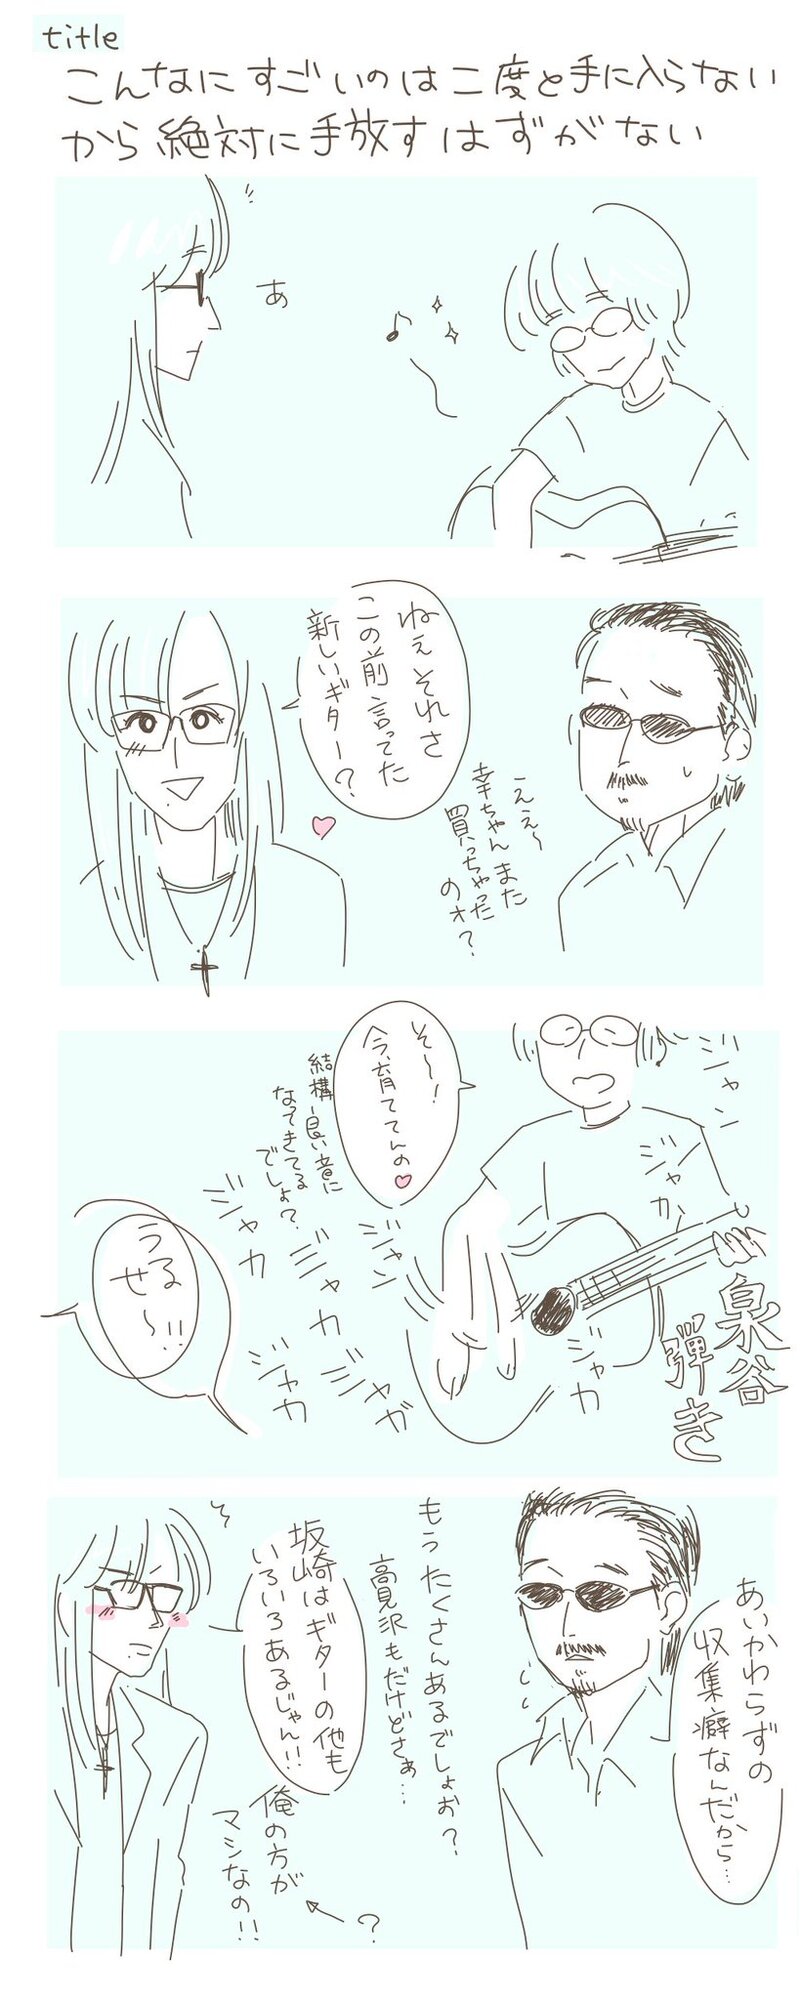 title
こんなにすごいのは二度と手に入らない
から絶対に手放すはずがない
あ
ねぇそれさ
この前言ってた
新しいギター?
ええ〜
幸ちゃんまた
買っちゃった
のォ?
ジャン
ジャカ
そ〜!
今、育ててんの
結構良い音に
なってきてる
でしょ?
ジャン
ジャカ
ジャカ
ジャカ
ジャカ
ジャガ
泉谷
弾き
うる
せ〜!!
あいかわらずの
収集癖なんだから…
もうたくさんあるでしょお?
高見沢もだけどさぁ…
坂崎はギターの他も
いろいろあるじゃん!!
俺の方が
マシなの!!
?